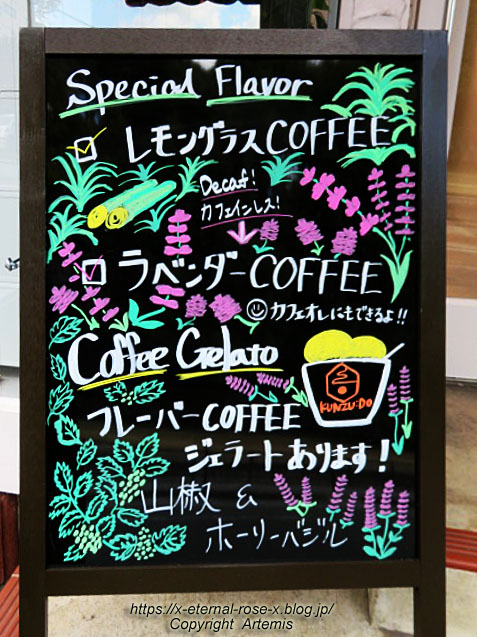 Special Flavor
レモングラスCOFFEE
Decaf!
カフェインレス!
ラベンダーCOFFEE
カフェオレにもできるよ!!
Coffee Gelato
KUNZU:DO
フレーバーCOFFEE
ジェラートあります!
山椒 &
ホーリーバジル
https://x-eternal-rose-x.blog.jp/
Copyright Artemis